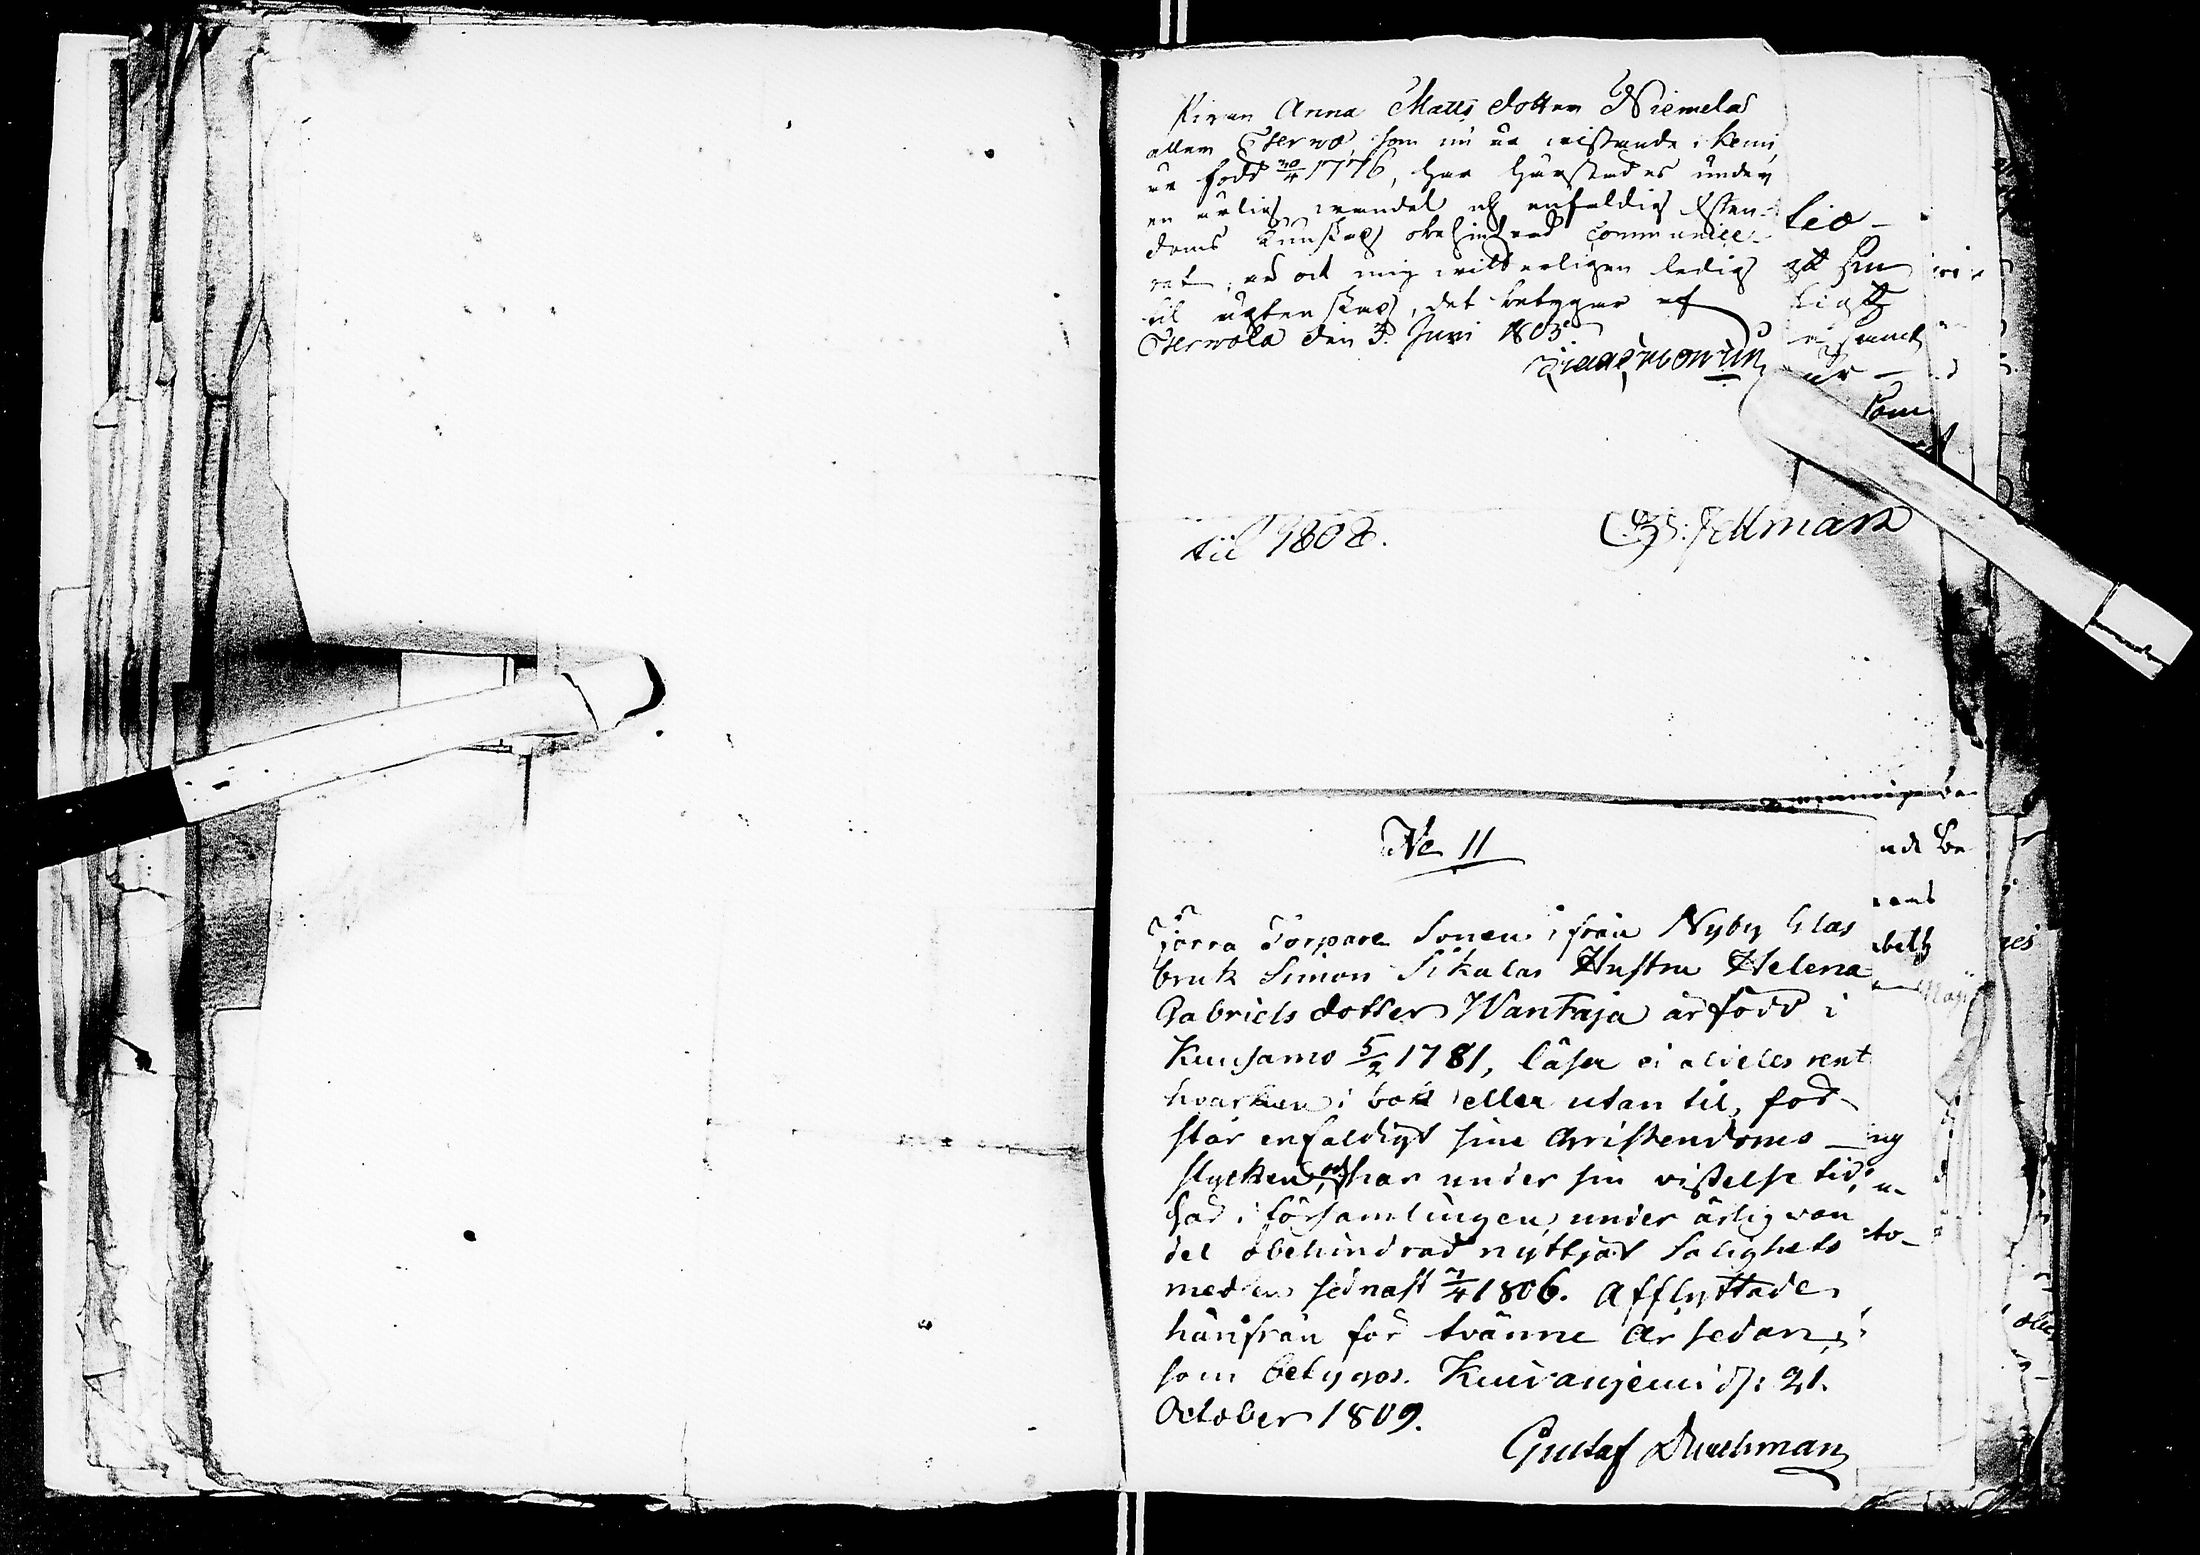 Pigan Anna Matts dotter Niemelas
eller Therwo, som nu är vistande i Kemi,
är född 30/4 1776, har härstädes under
en ärlig wandel och enfaldig Christen-
doms kunskap obehindrad communice-
rat, är och mig witterligen ledig
til ägtenskap, det betygar af
Therwola den 3. Juni 1803
tio-
som
til 1808.
Fellman
No 11
Förra Torpare Sonen ifrån Nyby Glas
bruk Simon Sikalas Hustru Helena
Gabriels dotter Wantaja är född i
Kuusamo 5/2 1781, läser ei aldeles rent
hvarken i bok eller utan til, för-
står enfaldigt sine Christendoms
stycken, och har under sin vistelse tid
här i församlingen under ärlig van
del obehindrad nyttjat salighets
medlen sednast 7/4 1806. Afflyttade
hänifrån för tvänne år sedan,
som betygas. Kuivaniemi d: 21.
October 1809.
Gustaf